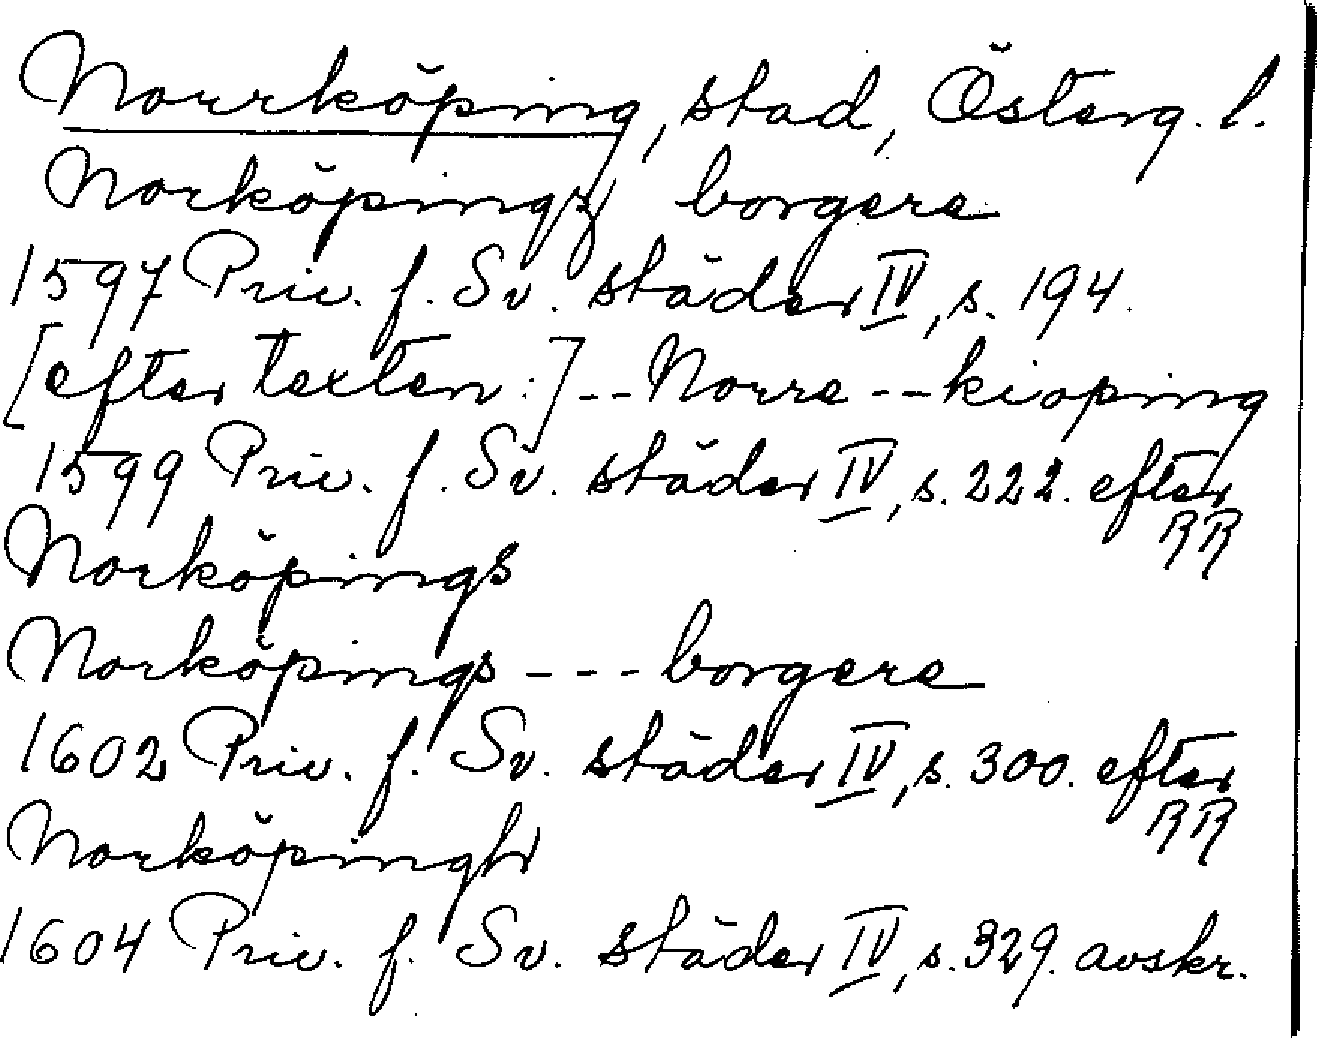 Norrköping, stad, Österg. l.
Norköpingz borgere
1597 Priv. f. Sv. städer IV, s. 194.
[efter texten:] -- Norre -- kiöping
1599 Priv. f. Sv. städer IV, s. 222. efter RR
Norköpings
Norköpings --- borgere
1602 Priv. f. Sv. städer IV, s. 300. efter RR
Norköpingh
1604 Priv. f. Sv. städer IV, s. 329. avskr.